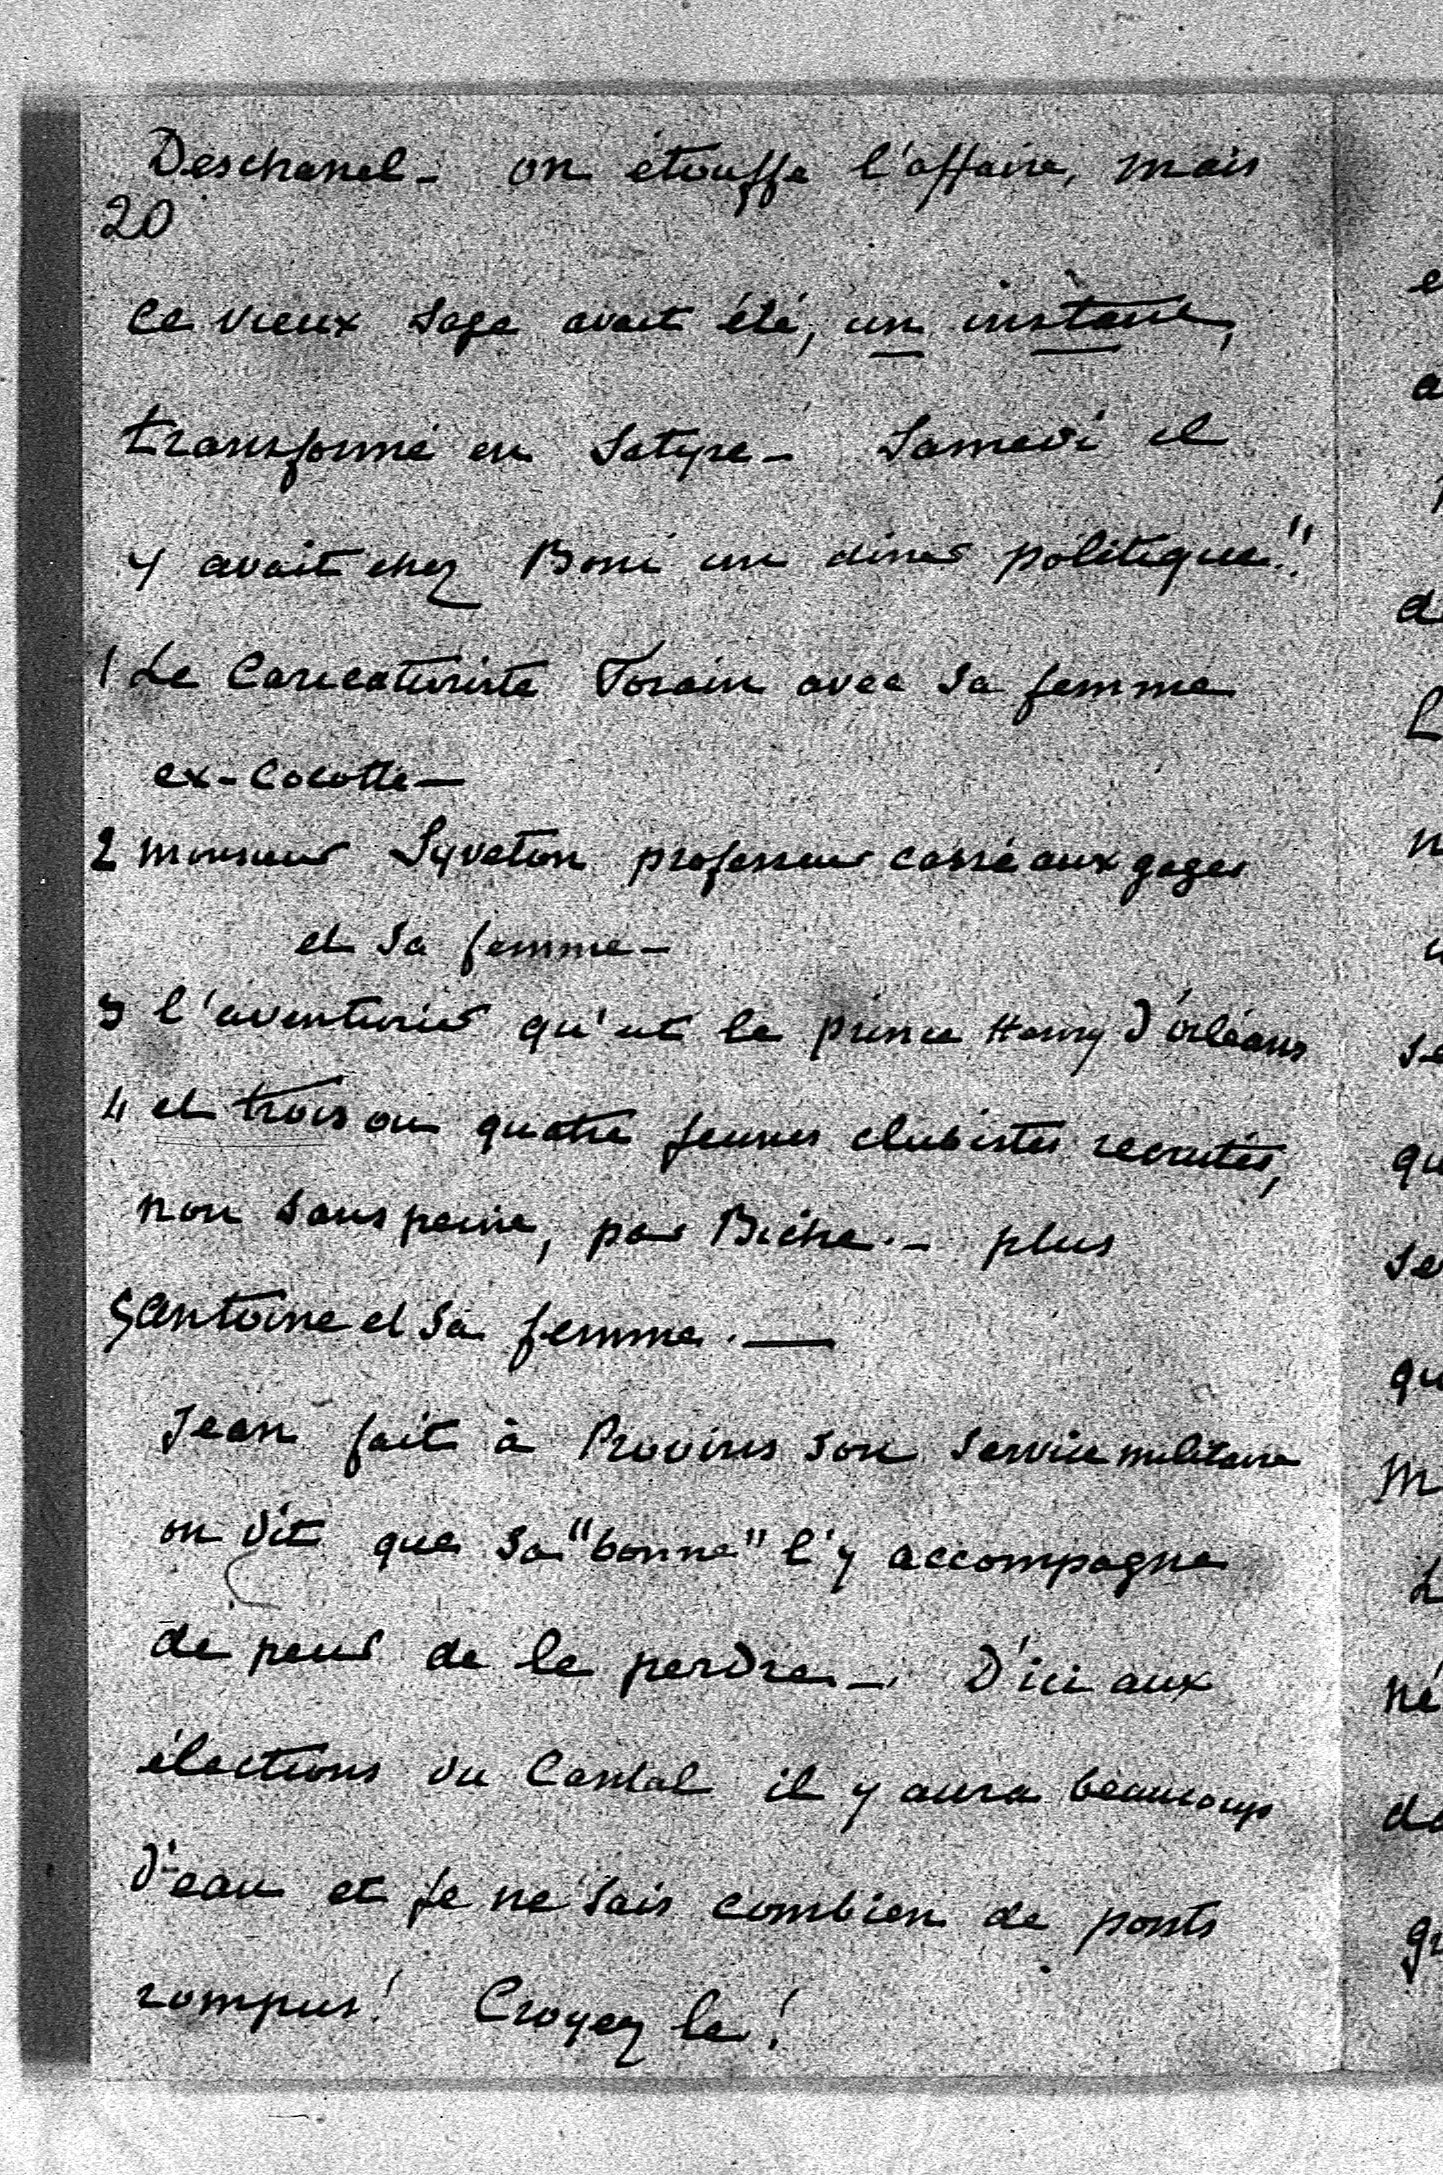 Deschanel - on étouffe l'affaire, mais
20
ce vieux sage avait été, un instant,
transformé en Satyre - Samedi il
y avait chez Boni un diner politique!!
1 Le Caricaturiste Forain avec sa femme
ex-Cocotte -
2 monsieur Syveton professeur cassé aux gages
et sa femme -
3 l'aventurier qu'est le prince Henry d'orléans
4 et trois ou quatre jeunes clubistes recrutés,
non sans peine, par Biche. - plus
5 Antoine et sa femme. -
Jean fait à Provins son service militaire
on dit que sa "bonne" l'y accompagne
de peur de le perdre -. D'ici aux
élections du Cantal il y aura beaucoup
d'eau et je ne sais combien de ponts
rompus! Croyez le!